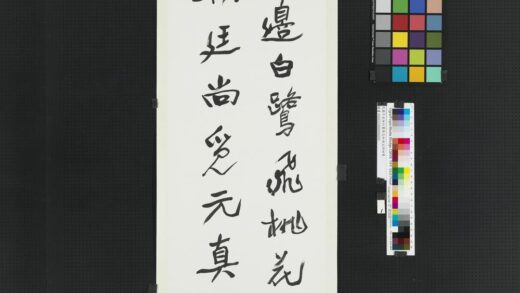 邊白鷺飛桃花
廷尚覓元真